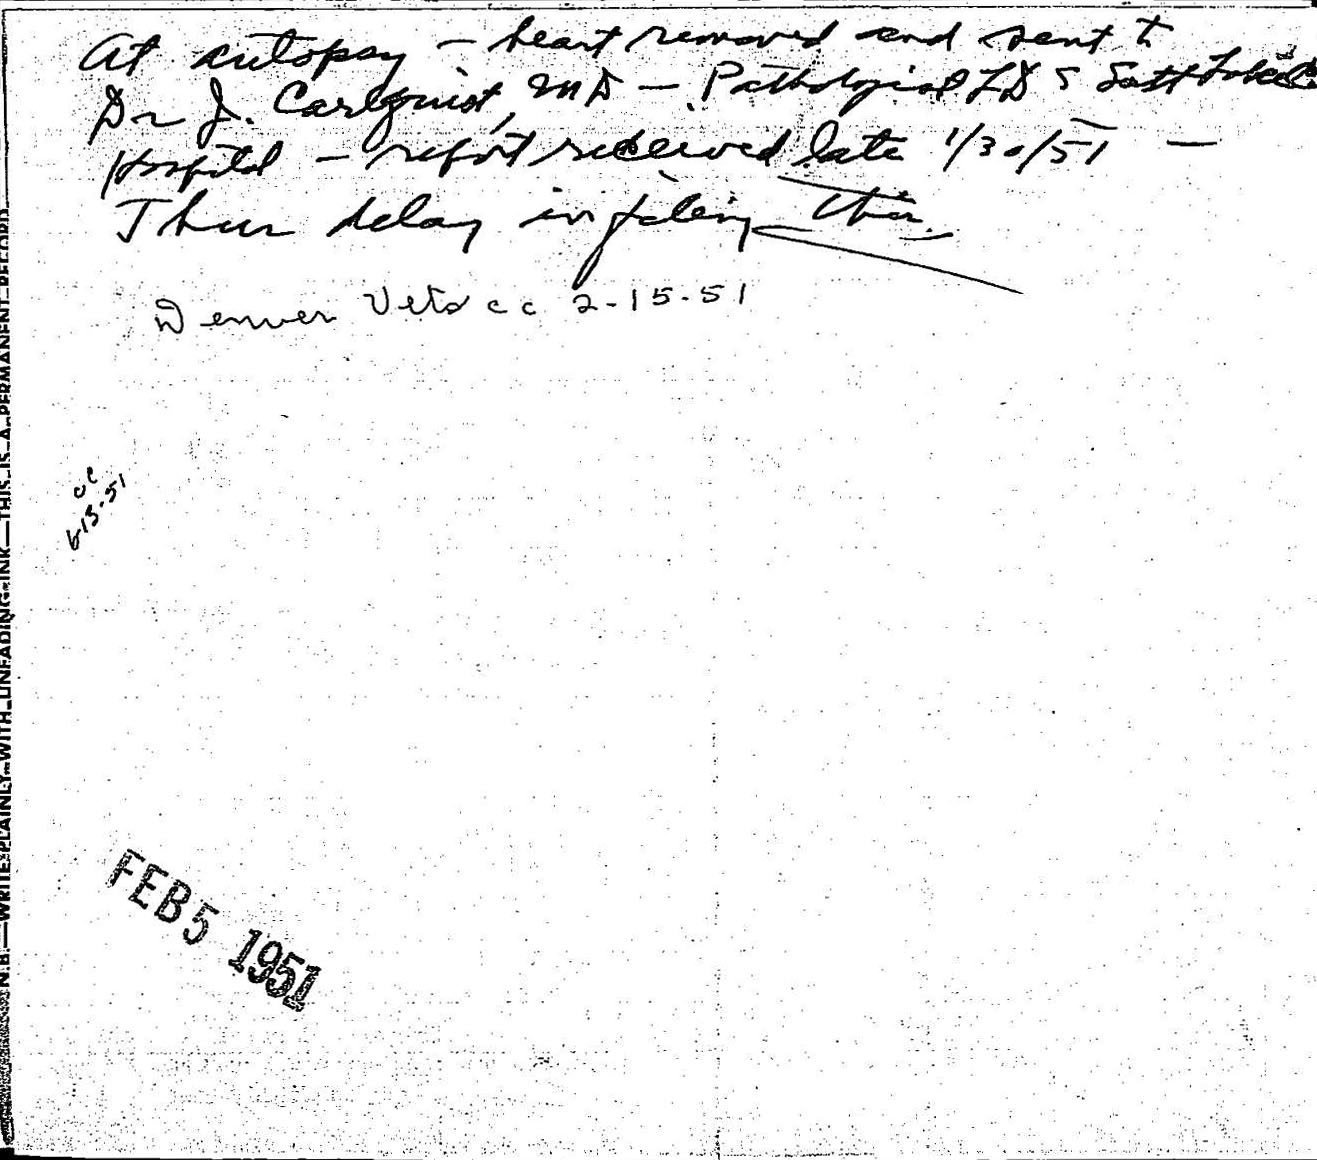 At autopsy – heart removed and sent to
Dr J. Carlquist, MD – Pathologist LDS Salt Lake
Hospital – report received late 1/30/51 –
Thus delay in filing this.
Denver Vets cc 2-15-51
cc
6-13-51
FEB 5 1951
N.B.—WRITE PLAINLY WITH UNFADING INK—THIS IS A PERMANENT RECORD